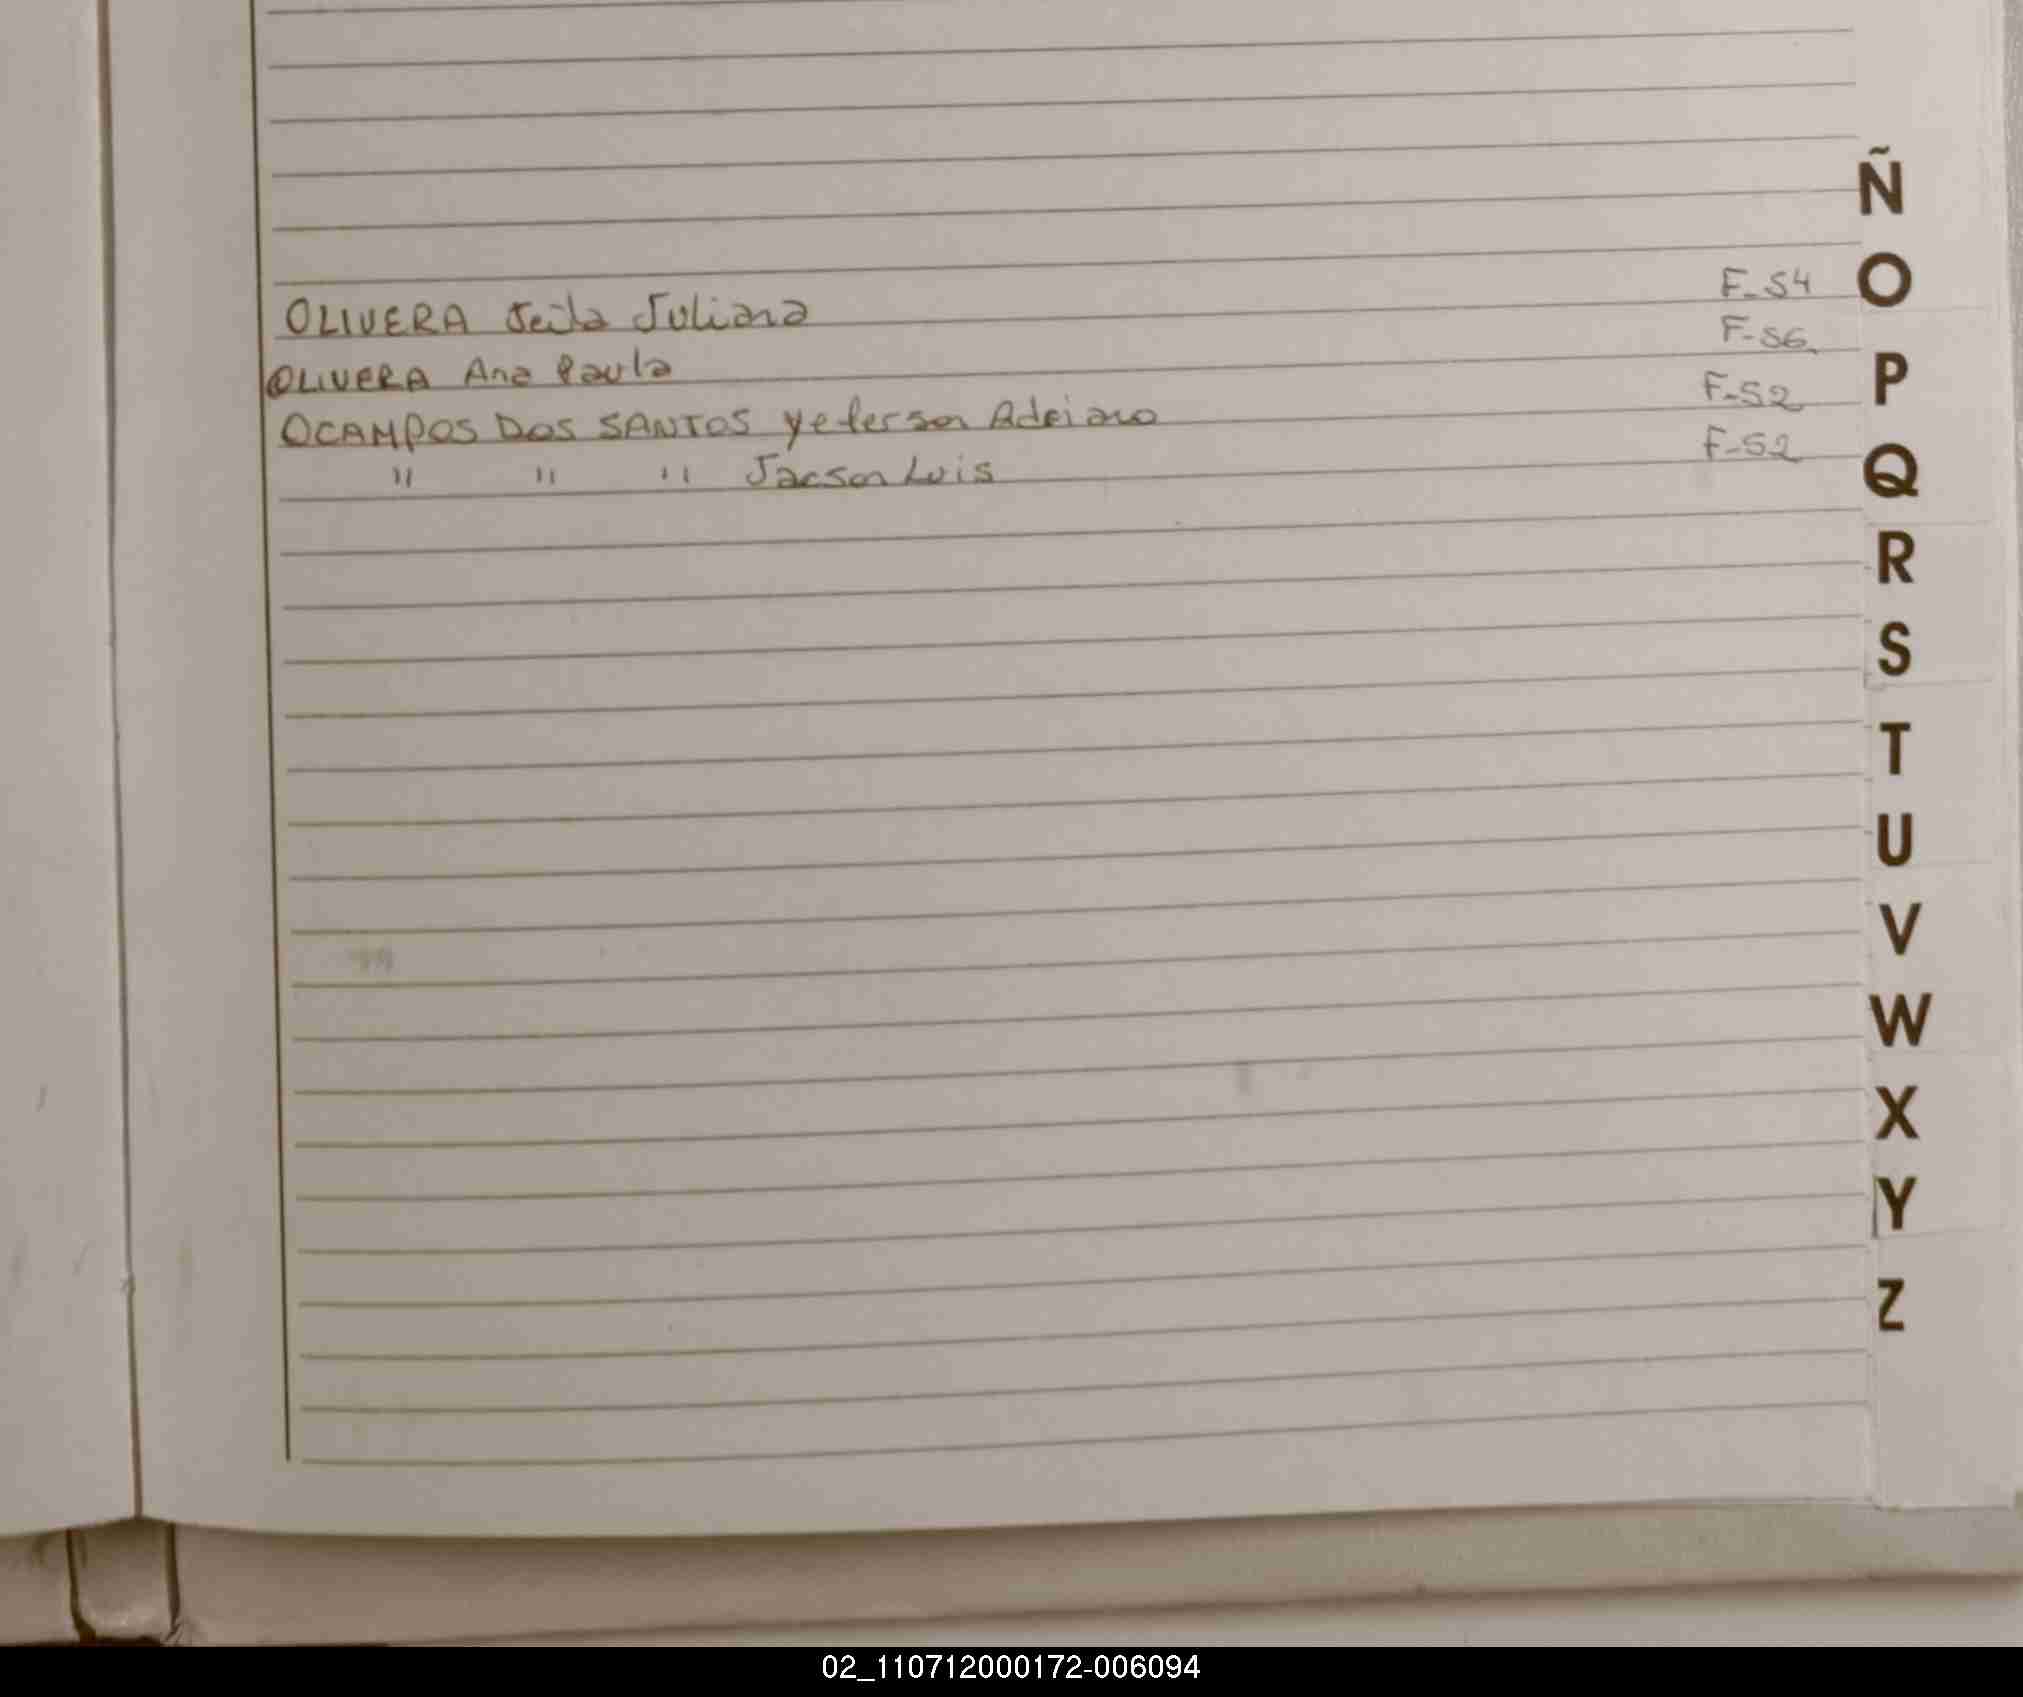 OLIVERA Jeila Juliana F-54
OLIVERA Ana Paula F-56
OCAMPOS DOS SANTOS Yeferson Adriano F-52
" " " Jacson Luis F-52
Ñ
O
P
Q
R
S
T
U
V
W
X
Y
Z
02_110712000172-006094